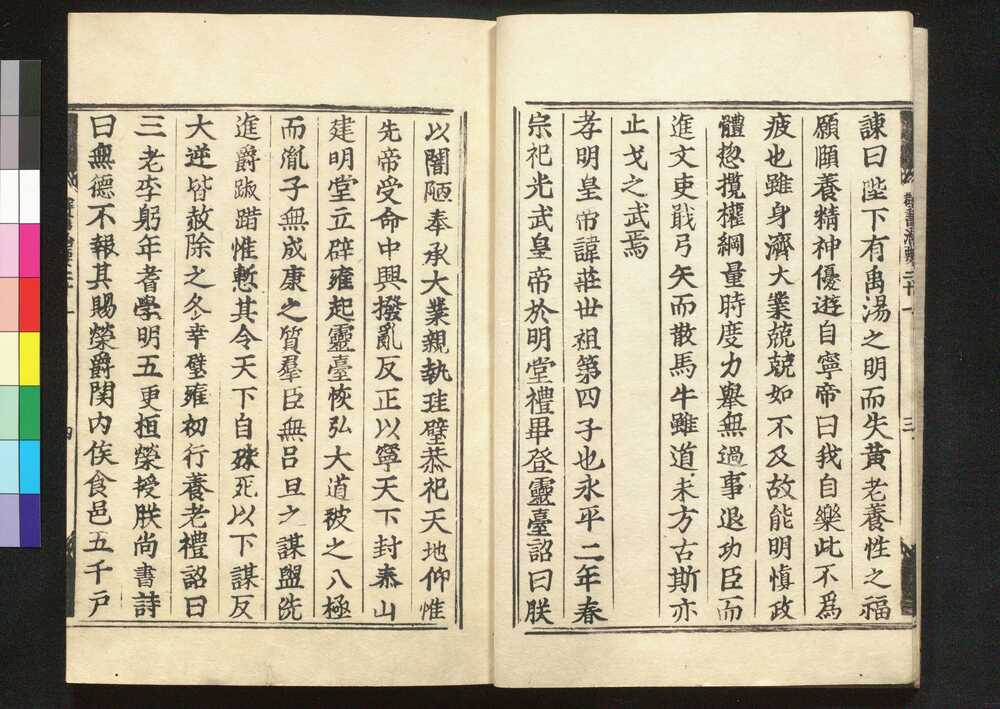 諫曰陛下有禹湯之明而失黃老養性之福
願頤養精神優遊自寧帝曰我自樂此不爲
疲也雖身濟大業兢兢如不及故能明愼政
體揔攬權綱量時度力舉無過事退功臣而
進文吏戢弓矢而散馬牛雖道未方古斯亦
止戈之武焉
孝明皇帝諱莊世祖第四子也永平二年春
宗祀光武皇帝於明堂禮畢登靈臺詔曰朕
以闇陋奉承大業親執珪璧恭祀天地仰惟
先帝受命中興撥亂反正以寧天下封泰山
建明堂立辟雍起靈臺恢弘大道被之八極
而胤子無成康之質羣臣無呂旦之謀盥洗
進爵踧踖惟慙其令天下自殊死以下謀反
大逆皆赦除之冬幸壁雍初行養老禮詔曰
三老李躬年耆學明五更桓榮授朕尚書詩
曰無德不報其賜榮爵関內侯食邑五千戶
羣書治要二十一
三
四